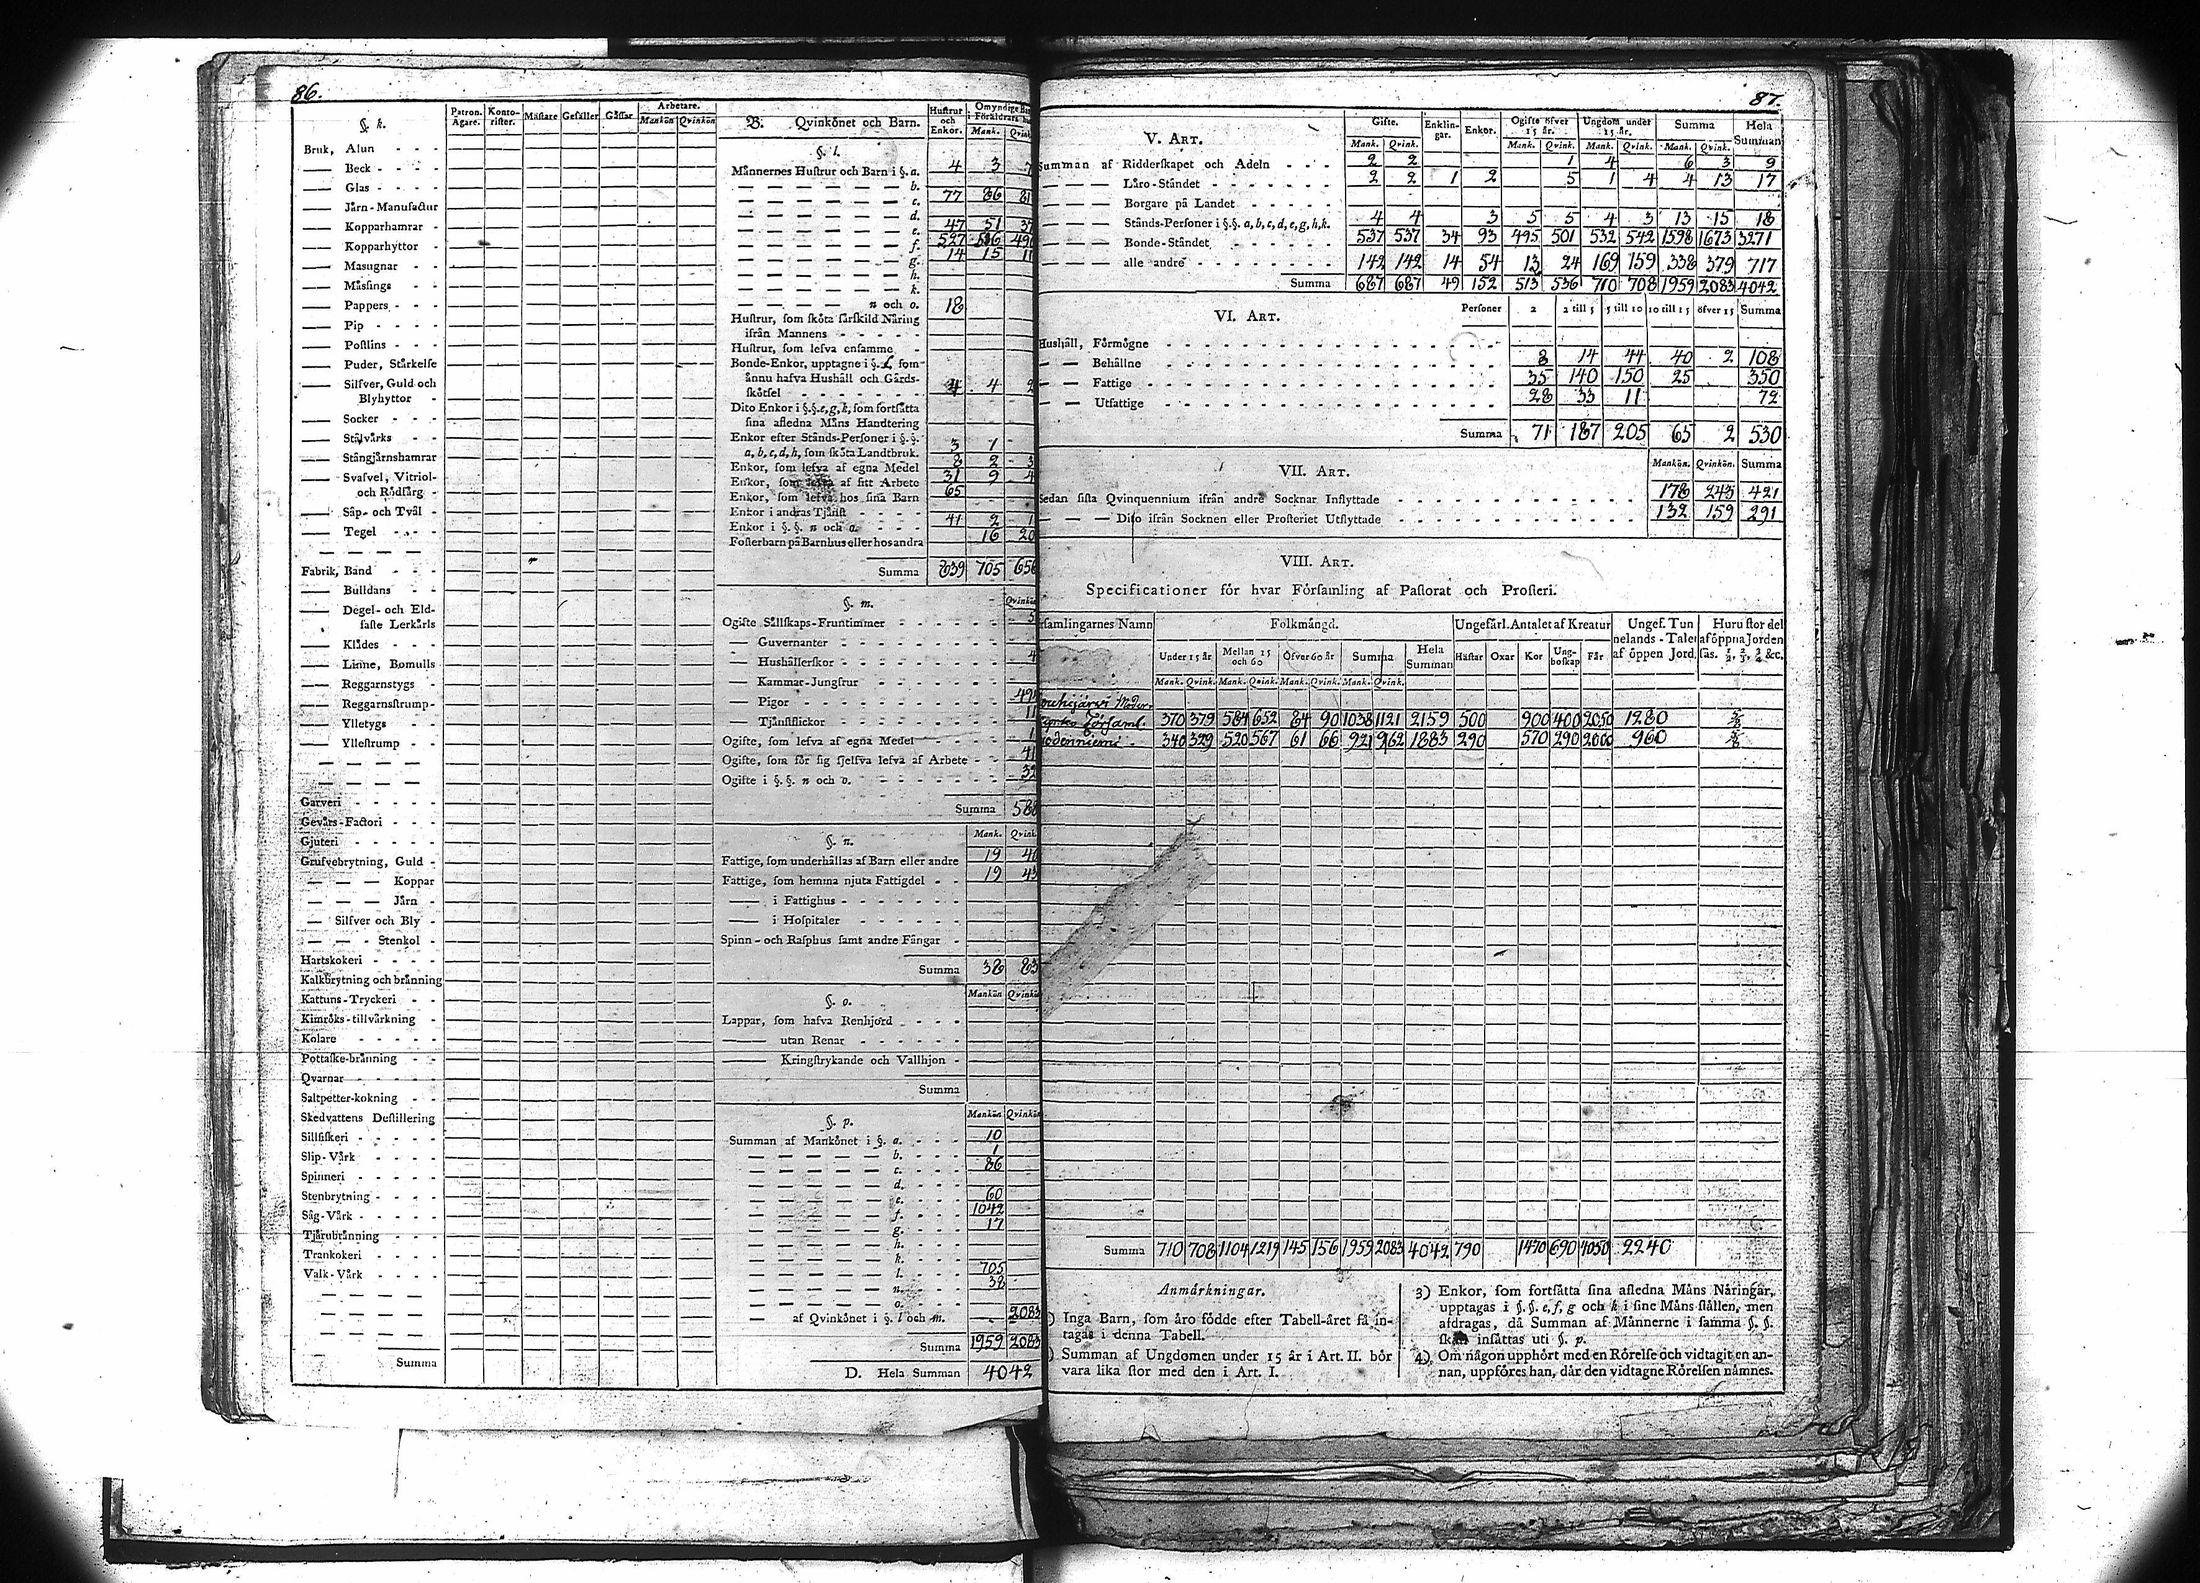 86.
§. k. Patron. Ägare. Konto-rister. Mästare Gesäller Gåssar Arbetare. Mankön Qvinkön
Bruk, Alun
— Beck
— Glas
— Järn-Manufactur
— Kopparhamrar
— Kopparhyttor
— Masugnar
— Mäsings
— Pappers
— Pip
— Postlins
— Puder, Stärkelse
— Silfver, Guld och
Blyhyttor
— Socker
— Stålvårks
— Stångjårnshamrar
— Svafvel, Vitriol-
och Rödfärg
— Såp- och Tvål
— Tegel
Fabrik, Band
— Bulldans
— Degel- och Eld-
faste Lerkårls
— Klådes
— Linne, Bomulls
— Reggarnstygs
— Reggarnsstrump-
— Ylletygs
— Yllestrump
Garveri
Gevårs-Factori
Gjuteri
Grufvebrytning, Guld
— — — Koppar
— — — Jårn
— Silfver och Bly
— — Stenkol
Hartskokeri
Kalkbrytning och brånning
Kattuns-Tryckeri
Kimröks-tillvårkning
Kolare
Pottaske-brånning
Qvarnar
Saltpetter-kokning
Skedvattens Destillering
Sillfiskeri
Slip-Vårk
Spinneri
Stenbrytning
Såg-Vårk
Tjårubrånning
Trankokeri
Valk-Vårk
Summa
B. Qvinkönet och Barn. Hustrur och Enkor. Omyndige i Föräldrars Mank.
§. l.
Männernes Hustrur och Barn i §. a. 4 3 7
b.
c. 77 86 81
d.
e. 47 51 37
f. 527 536
g. 14 15 11
h.
k.
n och o. 18
Hustrur, som sköta särskild Näring
ifrån Mannens
Hustrur, som lefva ensamme
Bonde-Enkor, upptagne i §. f, som
ännu hafva Hushåll och Gårds-
skötsel 4 4 2
Dito Enkor i §.§. e, g, k, som fortsätta
sina afledna Måns Handtering
Enkor efter Stånds-Personer i §.§.
a, b, c, d, h, som sköta Landtbruk. 3 1
Enkor, som lefva af egna Medel 8 2 3
Enkor, som lefva af sitt Arbete 31 9 4
Enkor, som lefva hos sina Barn 65
Enkor i andras Tjånst
Enkor i §.§. n och o. 41 2 1
Fosterbarn på Barnhus eller hos andra 16 20
Summa 839 705 656
§. m.
Ogifte Sällskaps-Fruntimmer 5
— Guvernanter
— Hushållerskor 4
— Kammar-Jungfrur
— Pigor
— Tjånstflickor 11
Ogifte, som lefva af egna Medel 1
Ogifte, som för sig sjelfva lefva af Arbete 41
Ogifte i §.§. n och o. 32
Summa 588
§. n. Mank. Qvink.
Fattige, som underhållas af Barn eller andre 19 40
Fattige, som hemma njuta Fattigdel 19 43
— i Fattighus
— i Hospitaler
Spinn- och Rasphus samt andre Fångar
Summa 38 83
§. o. Mankön Qvinkön
Lappar, som hafva Renhjord
— utan Renar
— Kringstrykande och Vallhjon
Summa
§. p. Mankön Qvinkön
Summan af Mankönet i §. a. 10
b. 1
c. 86
d.
e. 60
f. 1042
g. 17
h.
k.
l. 705
n. 38
o.
— af Qvinkönet i §. l och m. 2083
Summa 1959 2083
D. Hela Summan 4042
87.
V. Art. Gifte. Mank. Qvink. Enklin-gar. Enkor. Ogifte öfver 15 år. Mank. Qvink. Ungdom under 15 år. Mank. Qvink. Summa Mank. Qvink. Hela Summan
Summan af Ridderskapet och Adeln 2 2 1 4 6 3 9
— — — Läro-Ståndet 2 2 1 2 5 1 4 4 13 17
— — — Borgare på Landet
— — — Stånds-Personer i §.§. a, b, c, d, e, g, h, k. 4 4 3 5 5 4 3 13 15 18
— — — Bonde-Ståndet 537 537 34 93 495 501 532 542 1598 1673 3271
— — — alle andre 142 142 14 54 13 24 169 159 338 379 717
Summa 687 687 49 152 513 536 710 708 1959 2083 4042
VI. Art. Personer 2 2 till 5 5 till 10 10 till 15 öfver 15 Summa
Hushåll, Förmögne
— — Behållne 8 14 44 40 2 108
— — Fattige 35 140 150 25 350
— — Utfattige 28 33 11 72
Summa 71 187 205 65 2 530
VII. Art. Mankön. Qvinkön. Summa
Sedan sista Qvinquennium ifrån andre Socknar Inflyttade 178 243 421
— — — Dito ifrån Socknen eller Prosteriet Utflyttade 132 159 291
VIII. Art.
Specificationer för hvar Församling af Pastorat och Prosteri.
samlingarnes Namn Folkmängd. Ungefärl. Antalet af Kreatur Ungef. Tunnelands-Talet af öppen Jord. Huru stor del af öppna Jorden sås. ½, ⅔, ¾ &c.
Under 15 år Mellan 15 och 60 Öfver 60 år Summa Hela Summan Hästar Oxar Kor Ung-boskap Får
Mank. Qvink. Mank. Qvink. Mank. Qvink. Mank. Qvink.
Moder
Församl. 370 379 584 652 84 90 1038 1121 2159 500 900 400 2050 1280
340 329 520 567 61 66 921 962 1883 290 570 290 2000 960
Summa 710 708 1104 1219 145 156 1959 2083 4042 790 1470 690 4050 2240
Anmärkningar.
Inga Barn, som äro födde efter Tabell-året få in-
tagas i denna Tabell.
Summan af Ungdomen under 15 år i Art. II. bör
vara lika stor med den i Art. I.
3) Enkor, som fortsätta sina afledna Måns Näringar,
upptagas i §.§. e, f, g och k i sine Måns ställen, men
afdragas, då Summan af Männerne i samma §.§.
skall insättas uti §. p.
4) Om någon upphört med en Rörelse och vidtagit en an-
nan, uppföres han, där den vidtagne Rörelsen nämnes.